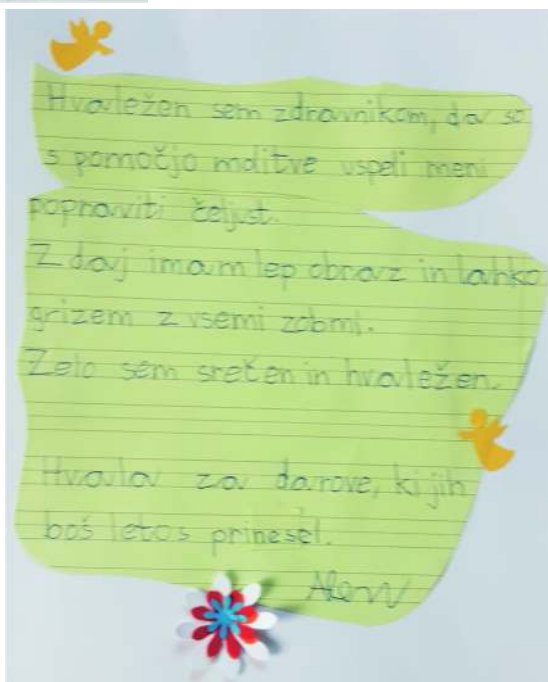 Hvaležen sem zdravnikom, da so
s pomočjo molitve uspeli meni
popraviti čeljust.
Zdaj imam lep obraz in lahko
grizem z vsemi zobmi.
Zelo sem srečen in hvaležen.
Hvala za darove, ki jih
boš letos prinesel.